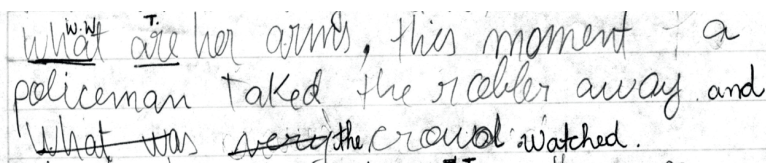 W.W T.
What are her arms, this moment a
policeman taked the robber away. and
What was very the crowd watched.